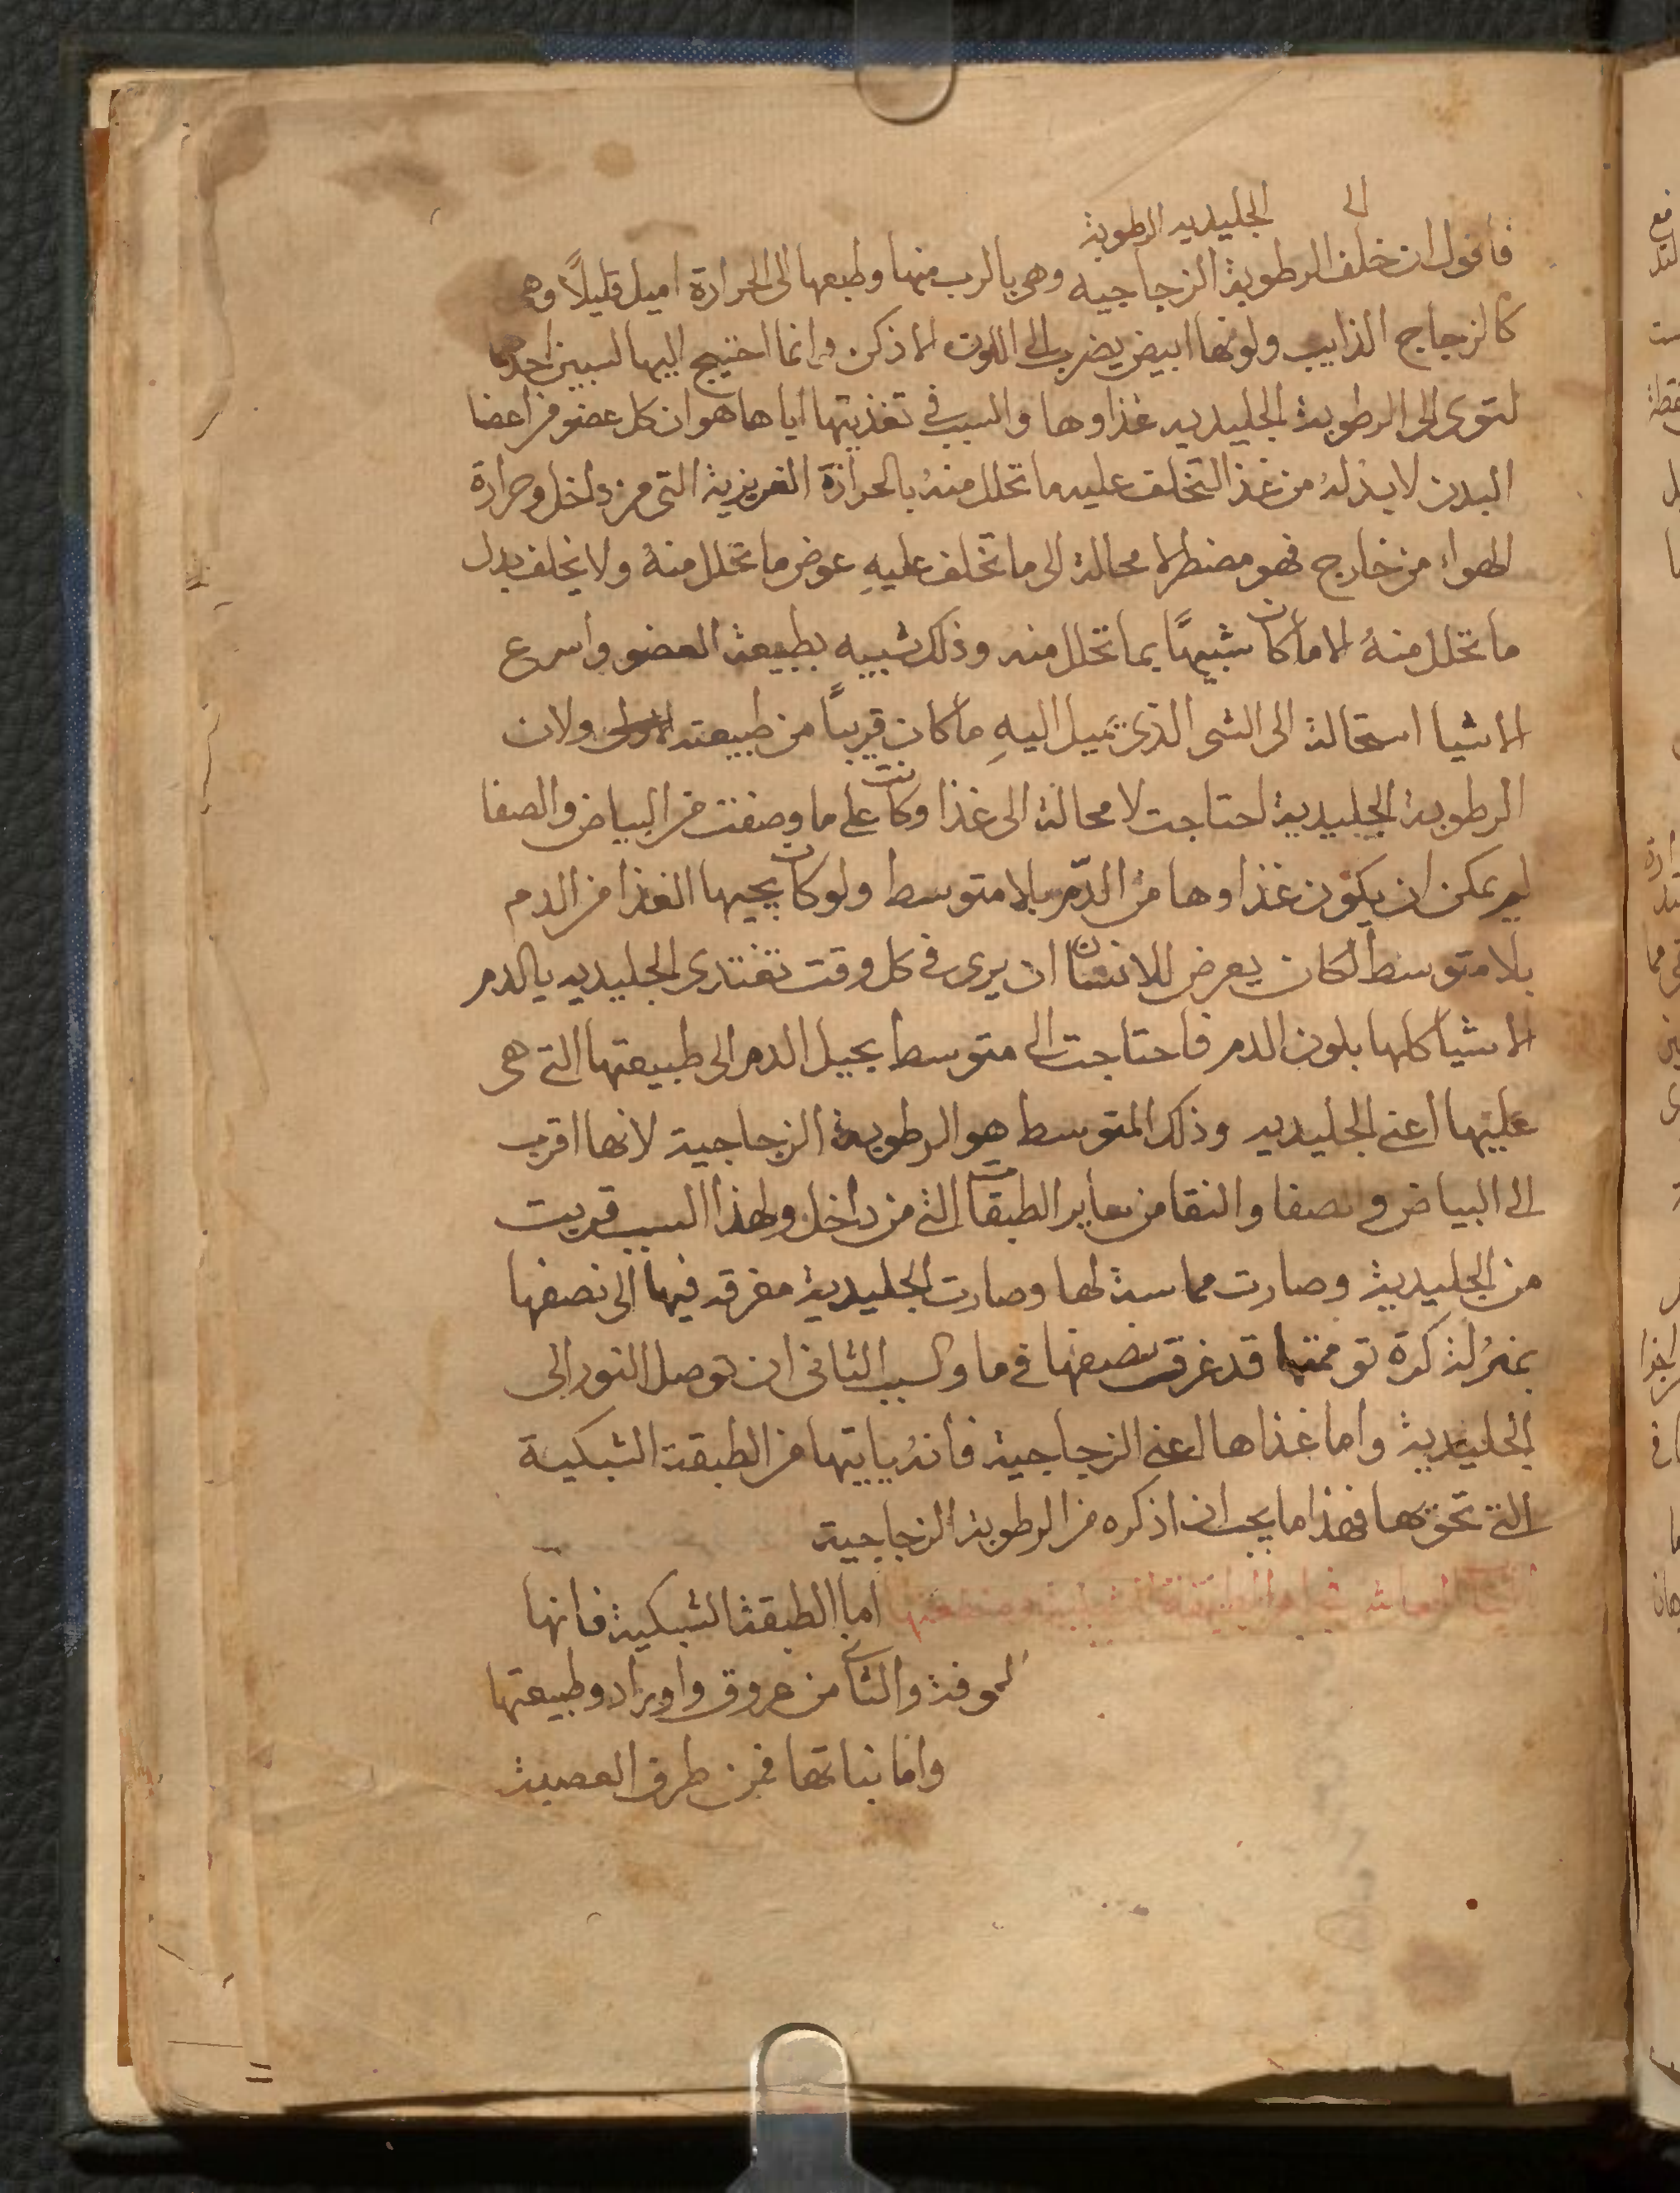 الى الجليديه الرطوبة
فاقول ان خلف الرطوبة الزجاجيه وهي بالرب منها وطبعها الى الحرارة اميل قليلاً وهي
كالزجاج الذايب ولونها ابيض يضرب الى اللون الاذكن وانما احتيج اليها لسببين احدهما
لتوى الى الرطوبة الجليديه غذاوها والسبب في تغذيتها اياها هو ان كل عضو من اعضا
البدن لا بد له من غذا لتخلف عليه ما تحلل منه بالحرارة الغريزية التي من داخل وحرارة
الهواء من خارج فهو مضطر لا محالة الى ما تخلف عليهِ عوض ما تحلل منهُ ولا يخلف بدل
ما تحلل منهُ الا ما كان شبيهًا بما تحلل منه وذلك شبيه بطبيعة العضو واسرع
الاشيا استحالة الى الشى الذى تميل اليهِ ما كان قريبًا من طبيعته ولان
الرطوبة الجليدية احتاجت لا محالة الى غذا وكانت على ما وصفت من البياض والصفا
لم يمكن ان يكون غذاوها من الدّم بلا متوسط ولو كان يجيها الغذا من الدم
بلا متوسط لكان يعرض للانسان ان يرى في كل وقت تغتدى الجليديه بالدم
الاشيا كلها بلون الدم فاحتاجت الى متوسط يحيل الدم الى طبيعتها التي هي
عليها اعني الجليديه وذلك المتوسط هو الرطوبة الزجاجية لانها اقرب
الى البياض والصفا والنقا من ساير الطبقات التي من داخل ولهذا السبب قربت
من الجليدية وصارت مماسة لها وصارت الجليدية مغرقه فيها الى نصفها
بمنزلة كرة قد غرق نصفها في ما والسبب الثاني ان توصل النور الى
الجليدية واما غذاها اعني الزجاجية فانهُ ياتيها من الطبقة الشبكية
التي تحويها فهذا ما يجب ان اذكره من الرطوبة الزجاجية
اما الطبقة الشبكية فانها
والثاني من عروق واوراد وطبيعتها
واما نباتها فمن طرف العصبة